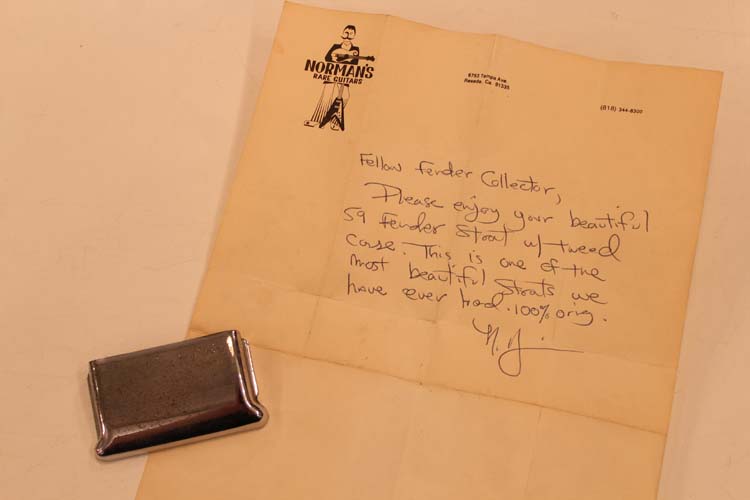 NORMAN'S
RARE GUITARS
6753 Tampa Ave.
Reseda, Ca. 91335
(818) 344-8300
Fellow Fender Collector,
Please enjoy your beautiful
59 Fender Strat w/tweed
case. This is one of the
most beautiful Strats we
have ever had. 100% orig.